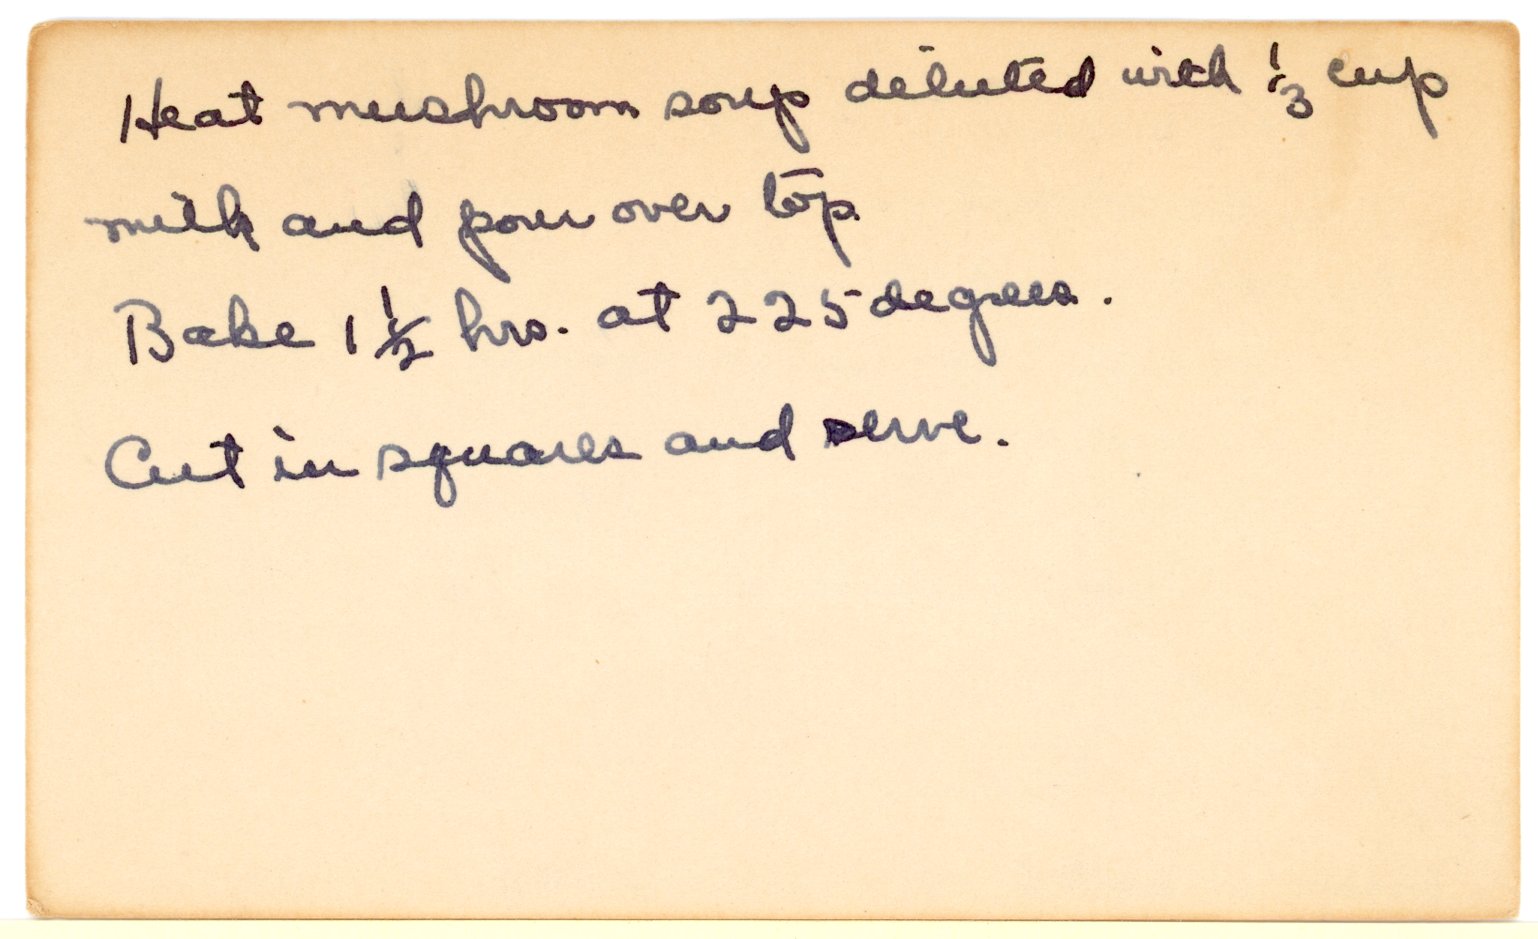 Heat mushroom soup diluted with 1/3 cup
milk and pour over top.
Bake 1 1/2 hrs. at 225 degrees.
Cut in squares and serve.